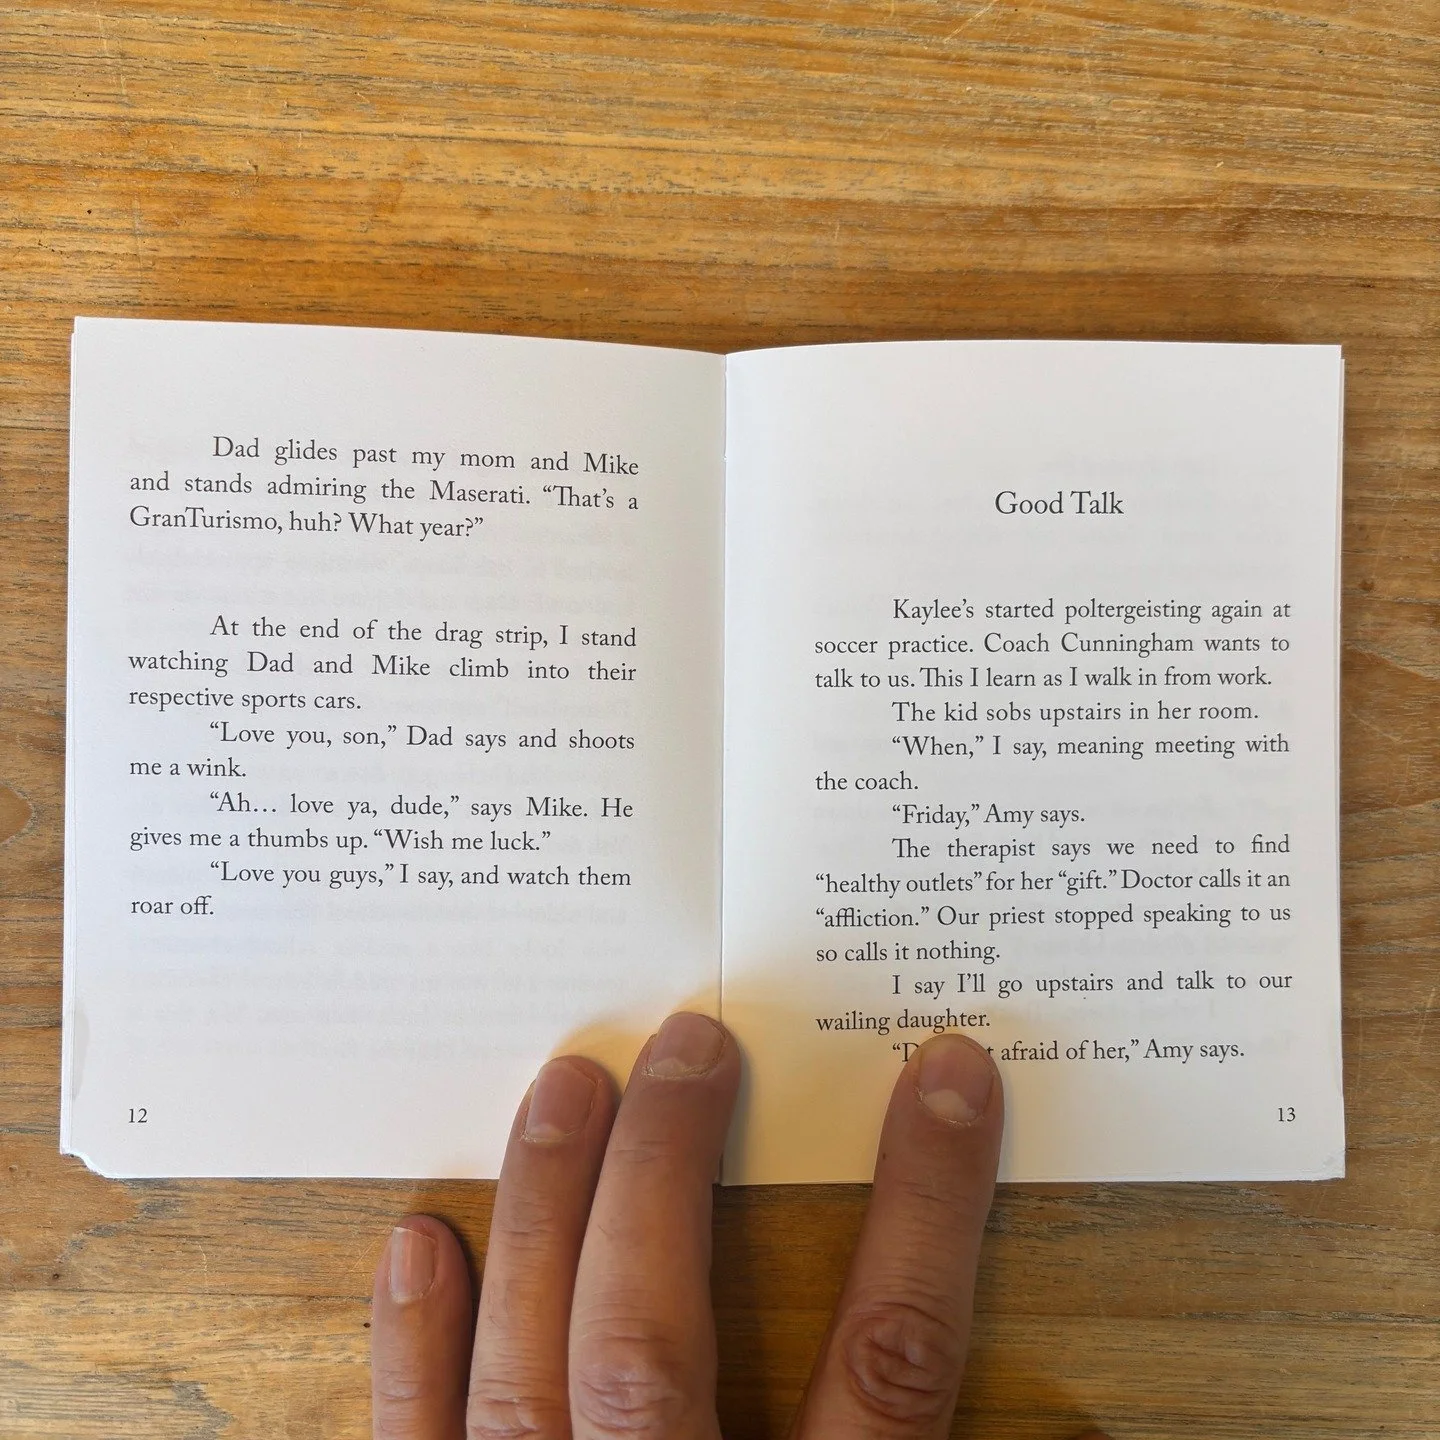 Dad glides past my mom and Mike
and stands admiring the Maserati. “That’s a
GranTurismo, huh? What year?”
At the end of the drag strip, I stand
watching Dad and Mike climb into their
respective sports cars.
“Love you, son,” Dad says and shoots
me a wink.
“Ah… love ya, dude,” says Mike. He
gives me a thumbs up. “Wish me luck.”
“Love you guys,” I say, and watch them
roar off.
12
Good Talk
Kaylee’s started poltergeisting again at
soccer practice. Coach Cunningham wants to
talk to us. This I learn as I walk in from work.
The kid sobs upstairs in her room.
“When,” I say, meaning meeting with
the coach.
“Friday,” Amy says.
The therapist says we need to find
“healthy outlets” for her “gift.” Doctor calls it an
“affliction.” Our priest stopped speaking to us
so calls it nothing.
I say I’ll go upstairs and talk to our
wailing daughter.
afraid of her,” Amy says.
13